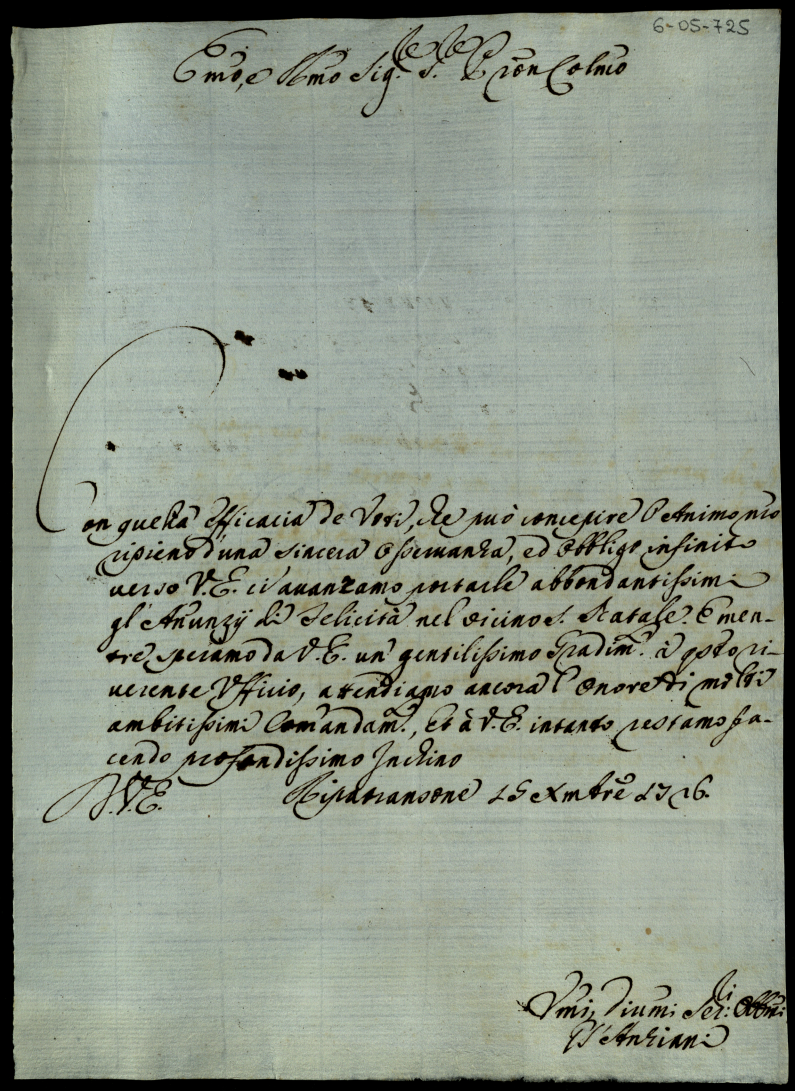 6-05-725
Emo, e Rmo Sig.re S.re Pron Colmo
Con quella efficacia de Voti, che può concepire l'Animo nro
ripieno d'una sincera osseruanza, ed obbligo infinito
verso V.E. ci auanzamo portarle abbondantissimi
gl'Anunzij di Felicità nel vicino S. Natale. E men-
tre speriamo da V.E. un gentilissimo Gradim.to à q̃sto ri-
uerente Vfficio, attendiamo ancora l'onore di molti
ambitissimi Comandam.ti, et à V.E. intanto restamo fa-
cendo profondissimo Inchino
D.V.E. Ripatransone 15 Xmbre 1726.
Vmi, Diumi Ser.ri Obbmi
Gl'Anziani